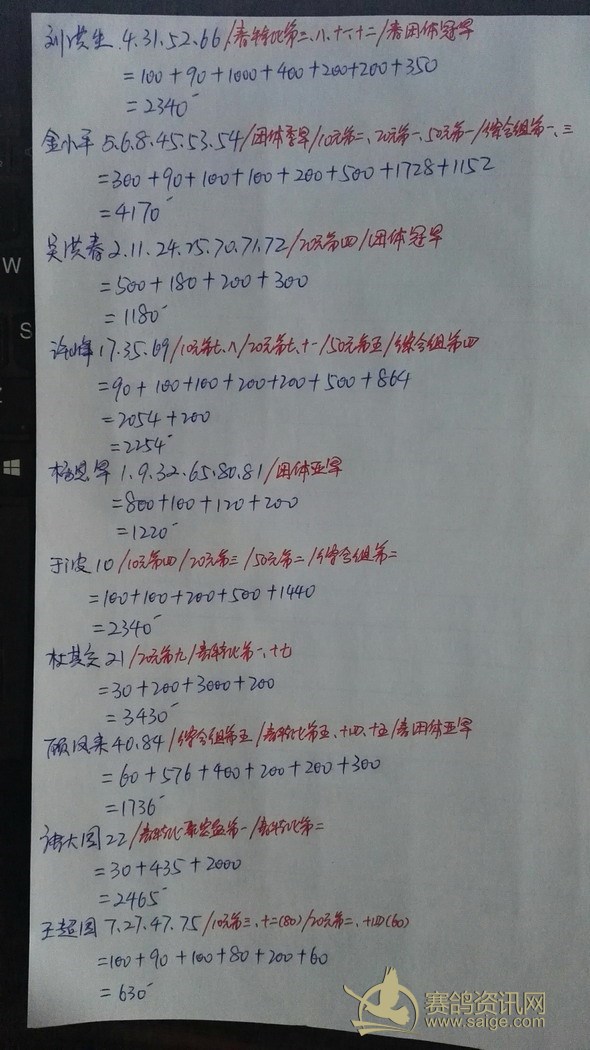 刘洪生 4.31.52.66/春特比第三、八、十一、十二/春团体冠军
=100+90+1000+400+200+200+350
=2340
金小平 5.6.8.45.53.54/团体季军/10元第二、20元第一、50元第一/综合组第一、三
=300+90+100+100+200+500+1728+1152
=4170
吴洪春 2.11.24.25.70.71.72/20元第四/团体冠军
=500+180+200+300
=1180
许峰 17.35.69/10元第七、八/20元第七、十一/50元第五/综合组第四
=90+100+100+200+200+500+864
=2054+200
=2254
杨思军 1.9.32.65.80.81/团体亚军
=800+100+120+200
=1220
于波 10/10元第四/20元第三/50元第二/综合组第二
=100+100+200+500+1440
=2340
杜其 21/20元第九/春特比第一、十七
=30+200+3000+200
=3430
顾凤来 40.84/综合组第五/春特比第五、十四、十五/春团体亚军
=60+576+400+200+200+300
=1736
大国 22/春特比 第一/春特比第二
=30+435+2000
=2465
王超国 7.27.47.75/10元第三、十二(80)/20元第二、十四(60)
=100+90+100+80+200+60
=630
W
S
赛鸽资讯网
www.saige.com